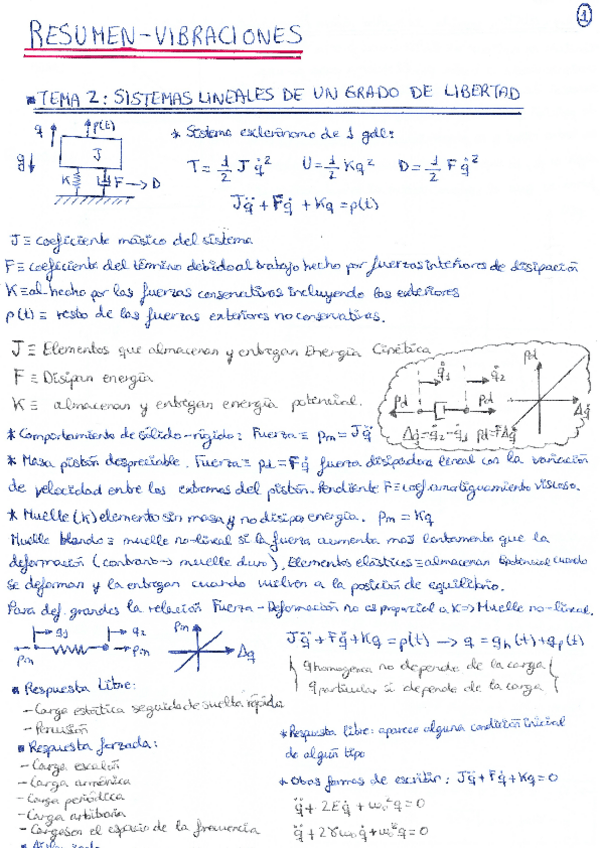 1
RESUMEN-VIBRACIONES
TEMA 2: SISTEMAS LINEALES DE UN GRADO DE LIBERTAD
q p(t)
J
g
K F → D
* Sistema esclerónomo de 1 gdl:
T = 1/2 J q̇² U = 1/2 K q² D = 1/2 F q̇²
Jq̈ + Fq̇ + Kq = p(t)
J ≡ coeficiente másico del sistema
F ≡ coeficiente del término debido al trabajo hecho por fuerzas interiores de disipación
K ≡ al hecho por las fuerzas conservativas incluyendo las exteriores
p(t) ≡ resto de las fuerzas exteriores no conservativas.
J ≡ Elementos que almacenan y entregan Energía Cinética
F ≡ Disipan energía
K ≡ almacenan y entregan energía potencial.
q̇1 q̇2
pd pd
Δq̇ = q̇2 - q̇1 pd = FΔq̇
pd
Δq̇
* Comportamiento de sólido-rígido: Fuerza ≡ pm = Jq̈
* Masa pistón despreciable. Fuerza ≡ pd = Fq̇ fuerza disipadora lineal con la variación
de velocidad entre los extremos del pistón. Pendiente F ≡ coef. amortiguamiento viscoso.
* Muelle (K) elemento sin masa y no disipa energía. pm = Kq
Muelle blando ≡ muelle no-lineal si la fuerza aumenta mas lentamente que la
deformación (contrario → muelle duro). Elementos elásticos ≡ almacenan Epotencial cuando
se deforman y la entregan cuando vuelven a la posición de equilibrio.
Para def. grandes la relación Fuerza - Deformación no es proporcial a K => Muelle no-lineal.
q1 q2
pm pm
pm
Δq
Jq̈ + Fq̇ + Kq = p(t) → q = qh(t) + qp(t)
qhomogenea no depende de la carga
qparticular si depende de la carga
Respuesta Libre:
- Carga estática seguida de suelta rápida
- Percusión
Respuesta forzada:
- Carga escalón
- Carga armónica
- Carga periódica
- Carga arbitraria
- Cargas en el espacio de la frecuencia
* Respuesta libre: aparece alguna condición inicial
de algún tipo
* Otras formas de escribir: Jq̈ + Fq̇ + Kq = 0
q̈ + 2Eq̇ + ω₀²q = 0
q̈ + 2γω₀q̇ + ω₀²q = 0